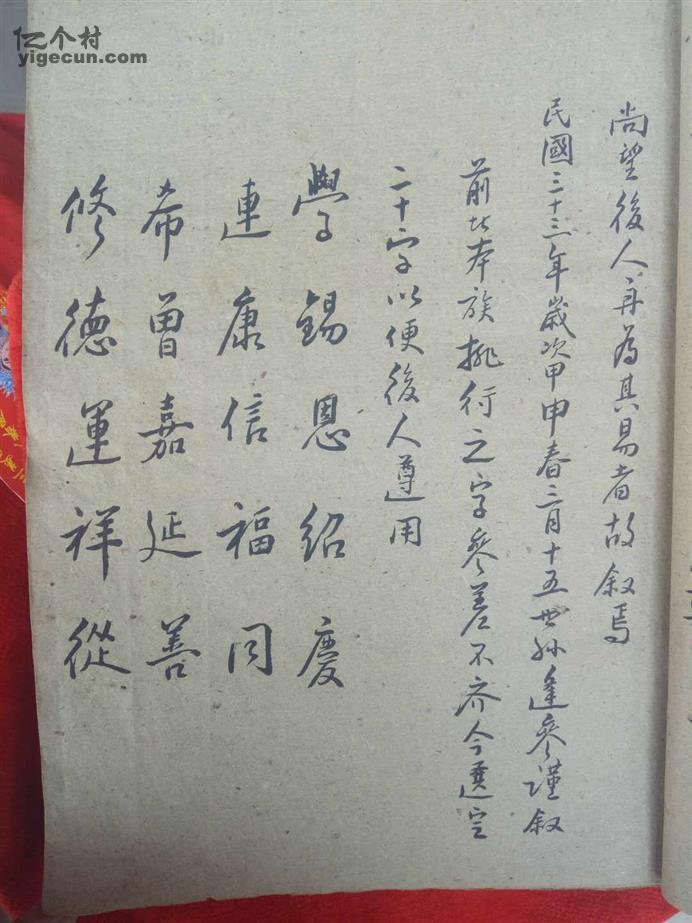 亿个村
yigecun.com
尚望後人再為其易者故叙焉
民國三十三年歲次甲申春三月十五世孫逢參謹叙
前此本族排行之字參差不齐今選定
二十字以便後人遵用
學錫恩紹慶
連康信福同
希曾嘉延善
修德運祥從